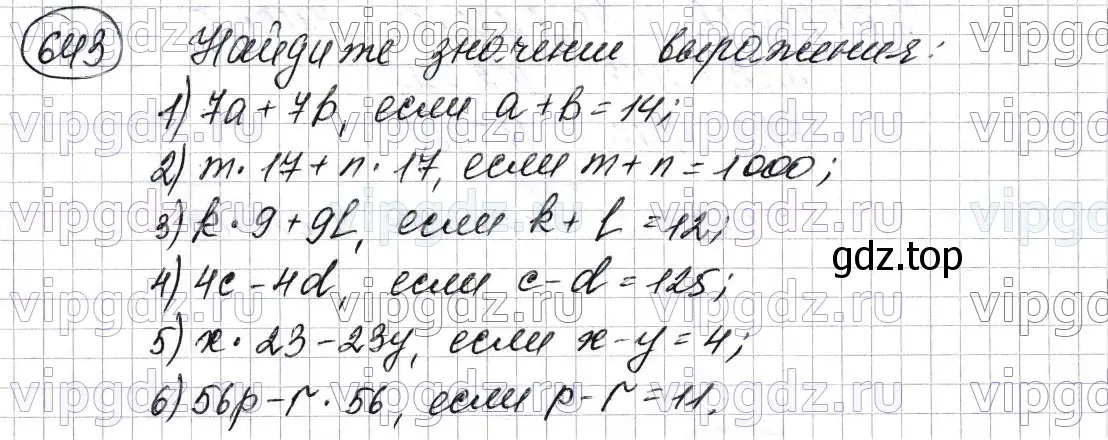 643 Найдите значении выражения:
1) 7a + 7b, если a + b = 14;
2) m · 17 + n · 17, если m + n = 1000;
3) k · 9 + 9l, если k + l = 12;
4) 4c - 4d, если c - d = 125;
5) x · 23 - 23y, если x - y = 4;
6) 56p - r · 56, если p - r = 11.
gdz.top